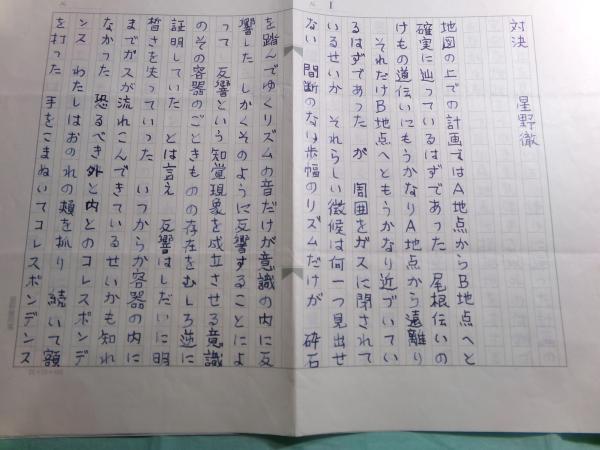 対決
星野徹
地図の上での計画ではA地点からB地点へと
確実に辿っているはずであった 尾根伝いの
けもの道伝いにもうかなりA地点から遠離り
それだけB地点へともうかなり近づいてい
るはずであった が 周囲をガスに閉されて
いるせいか それらしい徴候は何一つ見出せ
ない 間断のない歩幅のリズムだけが 砕石
を踏んでゆくリズムの音だけが意識の内に反
響した しかくそのように反響することによ
って 反響という知覚現象を成立させる意識
のその容器のごときものの存在をむしろ逆に
証明していた とは言え 反響はしだいに明
晳さを失っていった いつからか容器の内に
までガスが流れこんできているせいかも知れ
なかった 恐るべき外と内とのコレスポンデ
ンス わたしはおのれの頰を抓り 続いて額
を打った 手をこまぬいてコレスポンデンス
1